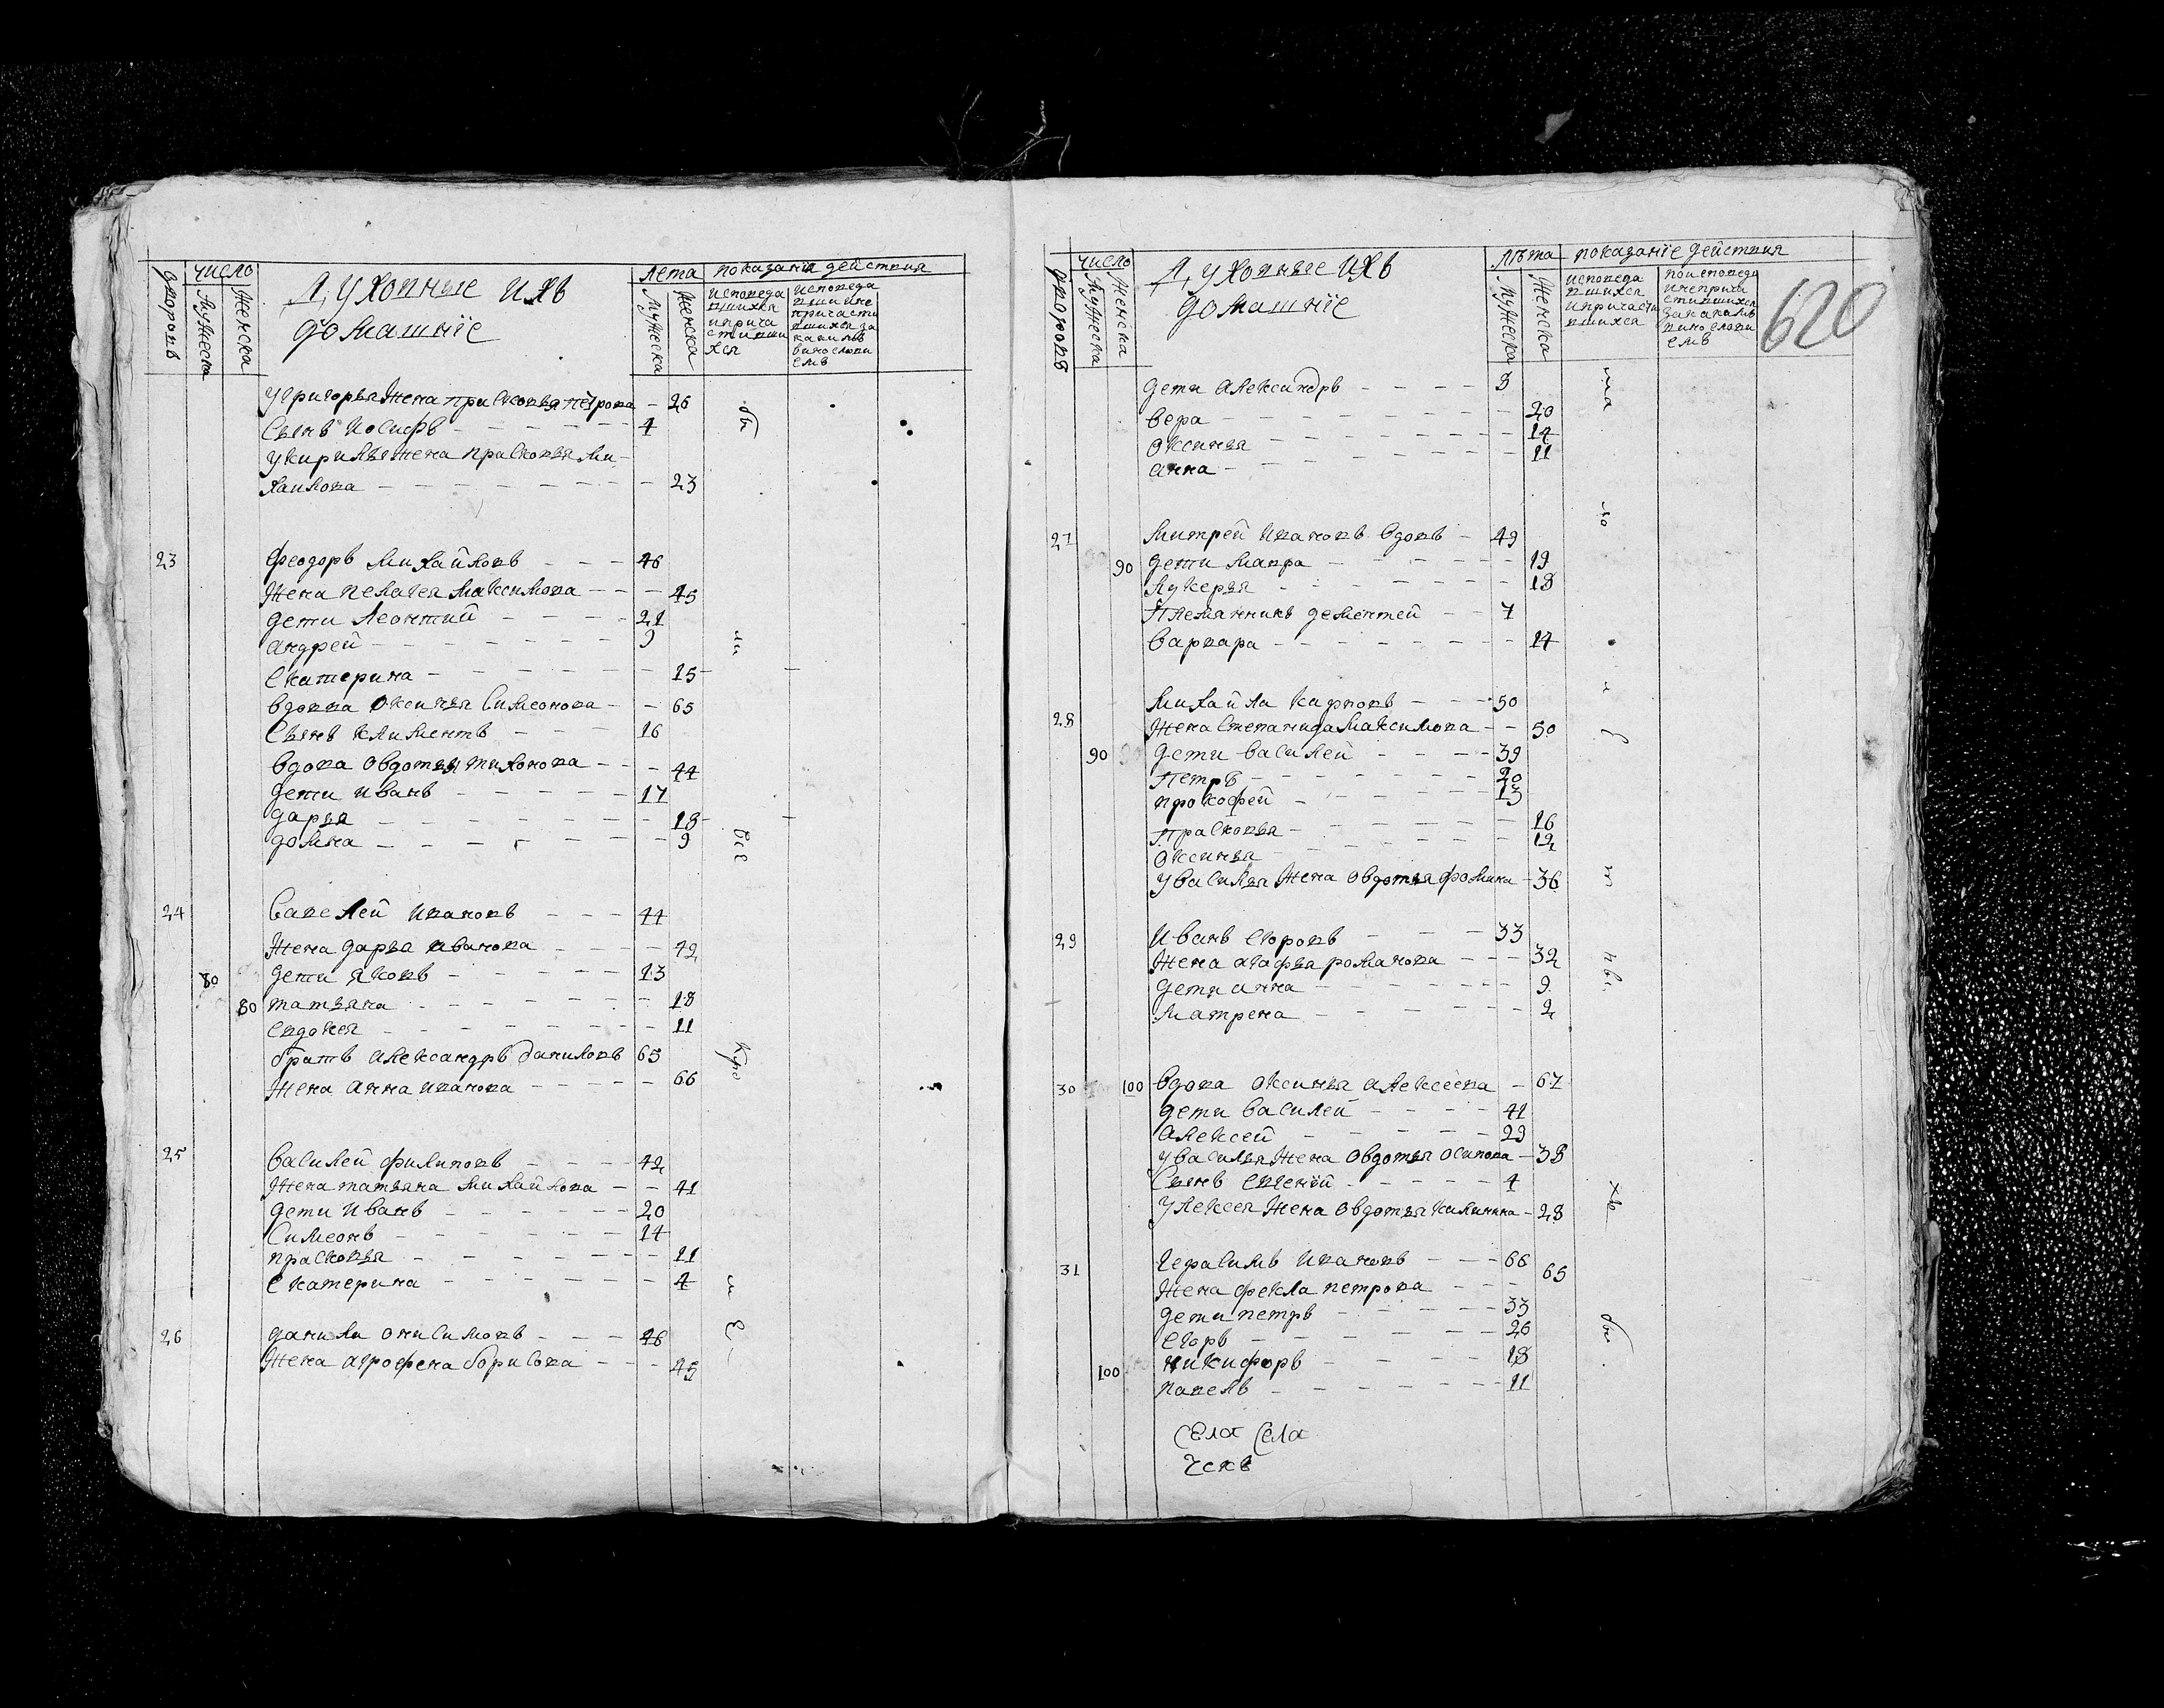 дворовъ
число
Мужеска
Женска
Духовные ихъ
домашнїе
лета
Мужеска
Женска
показанїя действия
исповеда
вшихся
и прича
стивши
хся
исповеда
вши и не
причасти
вшихся за
каким
винослови
емъ
У григорья жена прасковья петрова — 26
Сынъ Иосифъ — 4
У кирилы жена прасковья ми-
хаилова — 23
23 Феодоръ Михайловъ — 46
Жена пелагея Максимова — 45
дети Леонтий — 21
андрей — 9
Екатерина — 15
вдовва оксинья Симеонова — 65
Сынъ климентъ — 16
вдова овдотья тихонова — 44
дети иванъ — 17
дарья — 18
домна — 9
24 Савелей ивановъ — 44
Жена дарья иванова — 42
80 дети яковъ — 13
80 татьяна — 18
евдокея — 11
братъ александръ даниловъ 65
Жена анна иванова — 66
25 василей филиповъ — 42
Жена татьяна Михайлова — 41
дети иванъ — 20
Симеонъ — 14
прасковья — 11
екатерина — 4
26 данила онисимовъ — 46
Жена агрофена борисова — 45
бы
все
кро
620
дворовъ
число
Мужеска
Женска
Духовные ихъ
домашнїе
лѣта
Мужеска
Женска
показанїе действия
исповеда
вшихся
и причасти
вшихся
по исповеди
и неприча
стившихся
за какимъ
винослови
емъ
дети александръ — 3
вера — 20
оксинья — 14
анна — 11
27 Митрей ивановъ вдовъ — 49
90 дети мавра — 19
лукерья — 18
Племянникъ дементей — 7
варвара — 14
28 Михайла карповъ — 50
Жена степанида Максимова — 50
90 дети василей — 39
Петръ — 20
прокофей — 13
Прасковья — 16
оксинья — 12
У василья жена овдотья фомина — 36
29 Иванъ егоровъ — 33
Жена агафья романова — 32
дети анна — 9
Матрена — 2
30 100 вдова оксинья алексеева — 67
дети василей — 41
алексей — 29
У василья жена овдотья осипова — 38
Сынъ евгенїй — 4
У алексея жена овдотья калинина — 28
31 герасимъ ивановъ — 66
Жена фекла петрова — 65
дети петръ — 33
егоръ — 26
100 никифоръ — 18
павелъ — 11
ша
хъ
бы
села села